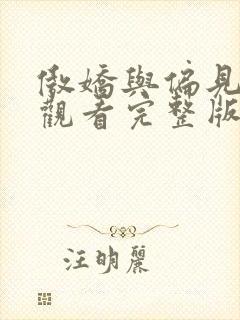 傲嬌與偏見
觀看完整版
汪明麗